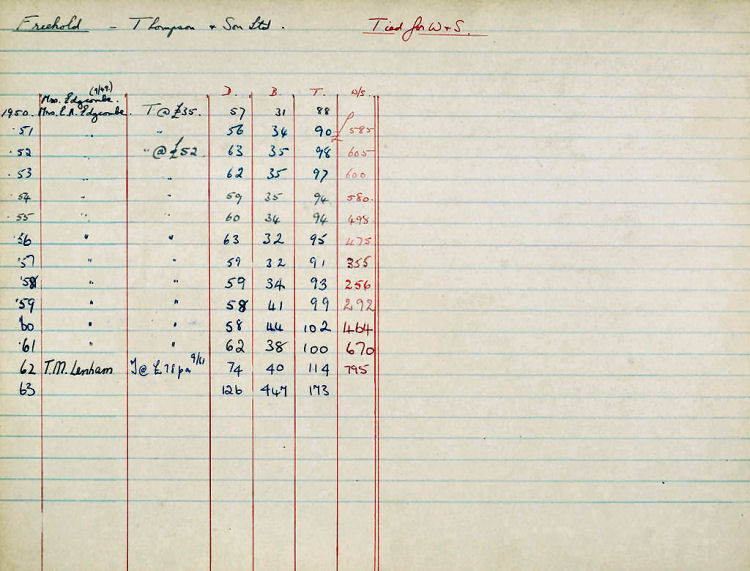 Freehold - Thompson & Son Ltd. Tied for W & S.
D. B. T. W/S.
Mrs. Edgcombe. (9/49)
1950. Mrs. C.A. Edgcombe. T @ £35. 57 31 88
'51 " " 56 34 90 £ 585
'52 " " @ £52. 63 35 98 605
'53 " 62 35 97 600
'54 " " 59 35 94 580
'55 " " 60 34 94 498
'56 " " 63 32 95 475
'57 " " 59 32 91 355
'58 " " 59 34 93 256
'59 " " 58 41 99 292
'60 " " 58 44 102 464
'61 " " 62 38 100 670
62 T.M. Lenham T @ £78 pa 9/61 74 40 114 795
63 126 447 173